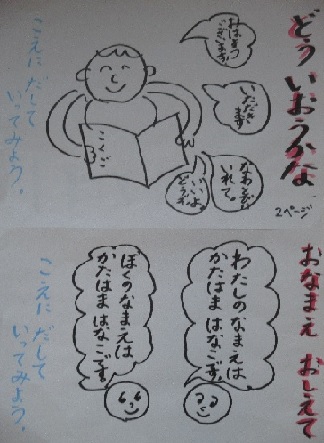 どういおうかな
2ページ
おはようございます。
いただきます
なかまに
いれて。
いいよ
どうぞ
こくご
こえに だして
いってみよう。
おなまえ おしえて
わたしの なまえは、
かたはま はなこです。
ぼくの なまえは
かたはま はなごです。
こえに だして
いってみよう。